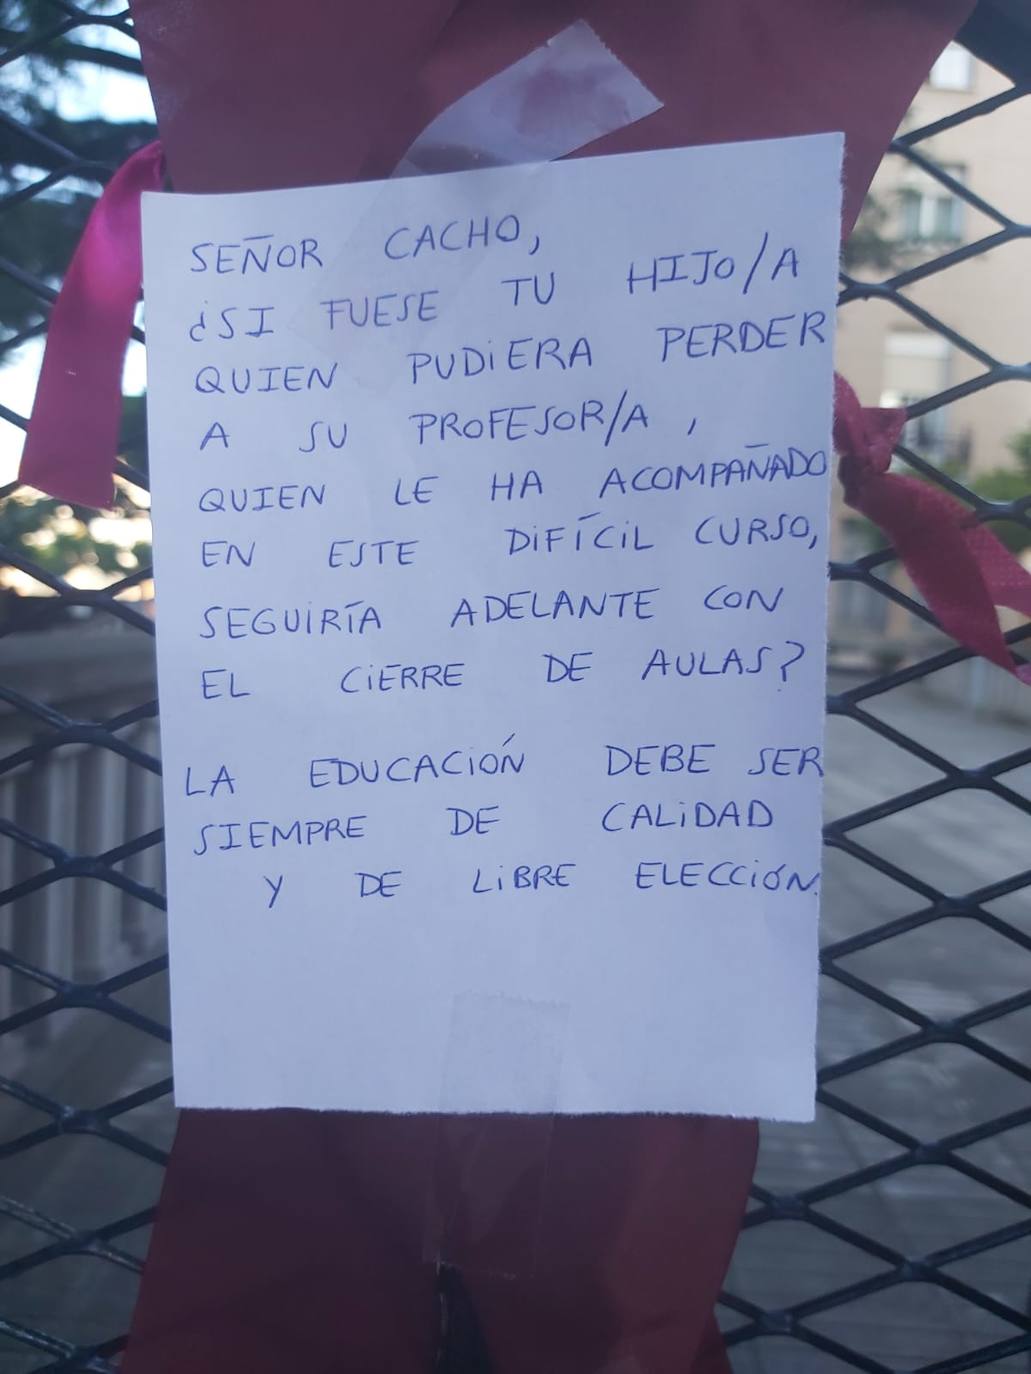 SEÑOR CACHO,
¿SI FUESE TU HIJO/A
QUIEN PUDIERA PERDER
A SU PROFESOR/A,
QUIEN LE HA ACOMPAÑADO
EN ESTE DIFÍCIL CURSO,
SEGUIRÍA ADELANTE CON
EL CIERRE DE AULAS?
LA EDUCACIÓN DEBE SER
SIEMPRE DE CALIDAD
Y DE LIBRE ELECCIÓN.